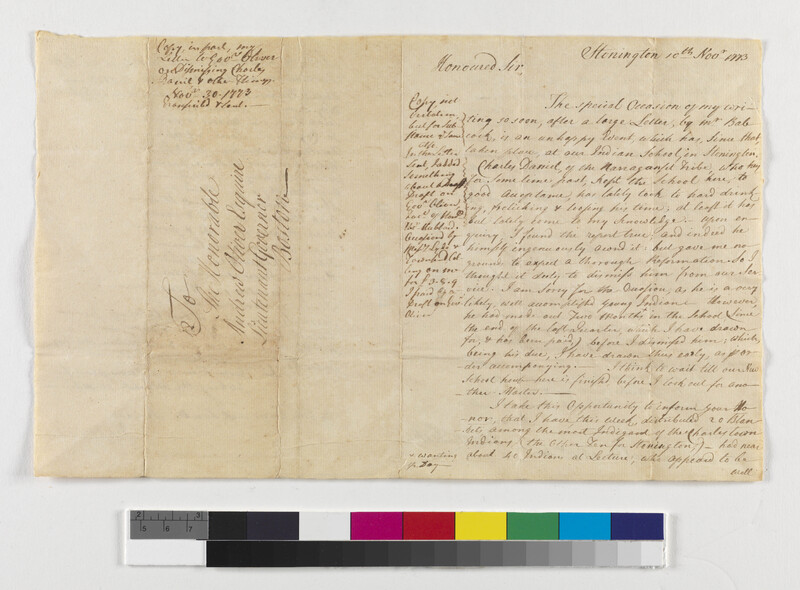 Copy, in part, my
Letter to Govr. Oliver
Dismissing Charles
Daniel & other Things
Novr. 30. 1773
To
The Honorable
Andrew Oliver Esquire
Lieutenant Governor
Boston
Stonington 10th Novr. 1773
Honoured Sir,
The special Occasion of my wri-
ting so soon, after a large Letter, by Mr Bab-
cock, is an unhappy Event, which has, since that,
taken place, at our Indian School, in Stonington,
Charles Daniel, of the Narraganset Tribe, who has
for some time past, kept the School here, to
good Acceptance, has lately took to hard drink-
ing, frolicking & loosing his time; at least it has
but lately come to my Knowledge. Upon en-
quiry, I found the report true, and indeed he
himself ingenuously own'd it: but gave me no
ground to expect a thorough Reformation. So I
thought it duty to dismiss him from our Ser-
vice. I am sorry for the Occasion, as he is a very
likely, well accomplished young Indian. However,
he had made out Two Months in the School (since
the end of the last Quarter, which I have drawn
for, & has been paid) before I dismissed him; which
being his due, I have drawn thus early, as pr or-
der accompanying. I think to wait till our New
School house here is finished before I look out for ano-
ther Master.
I take this Opportunity to inform your Ho-
nor, that I have this week, distributed 20 Blan-
kets among the most Indigent of the Charlestown
Indians (the other Ten for Stonington;) had near
about Indians at Lecture, who appeared to be
well
Copy not
but for
In the Letter
Sent, I added
something
about
Draft on
Govr. Oliver,
Townsend
ling on me
for £
I paid by a
Draft on Govr
Oliver
a wanting
Day